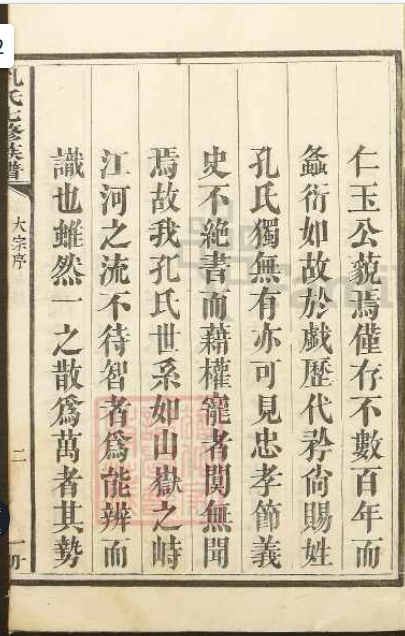 仁玉公藐焉僅存不數百年而
螽衍如故於戲歷代矜尙賜姓
孔氏獨無有亦可見忠孝節義
史不絶書而藉權寵者闃無聞
焉故我孔氏世系如山嶽之峙
江河之流不待智者爲能辨而
識也雖然一之散爲萬者其勢
孔氏七修族譜
大宗序
二